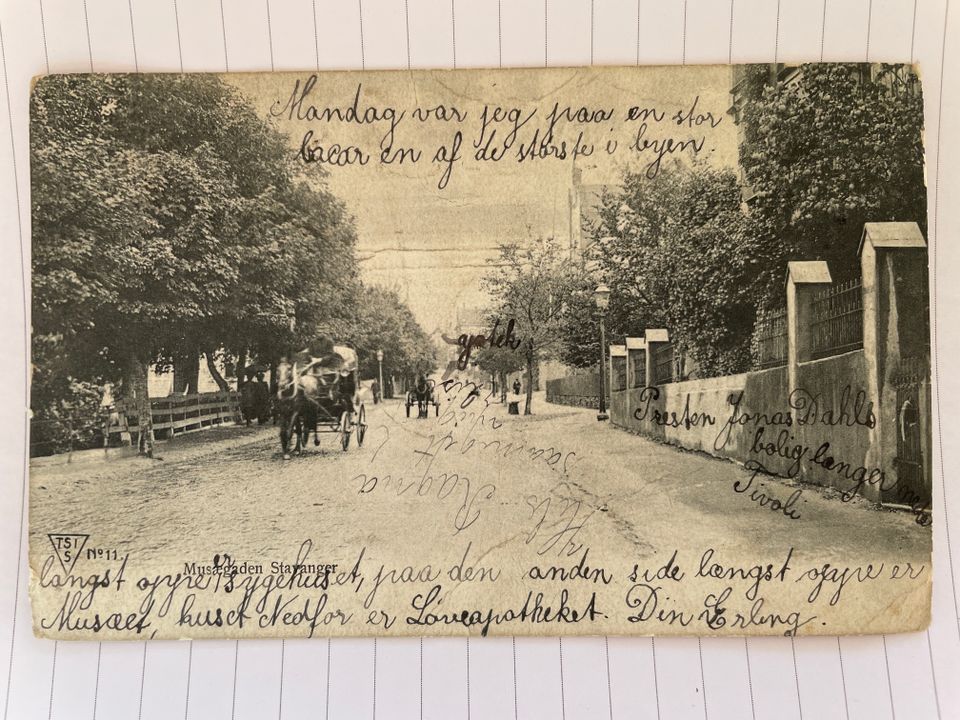 Mandag var jeg paa en stor
bacar en af de største i byen.
Presten Jonas Dahls
bolig længer nede
Tivoli
Hils Ragna
TSI
S
No 11.
Musægaden Stavanger
længst oppe er Sygehuset, paa den anden side længst oppe er
Musæet, huset Nedfor er Løveapotheket. Din Erling.